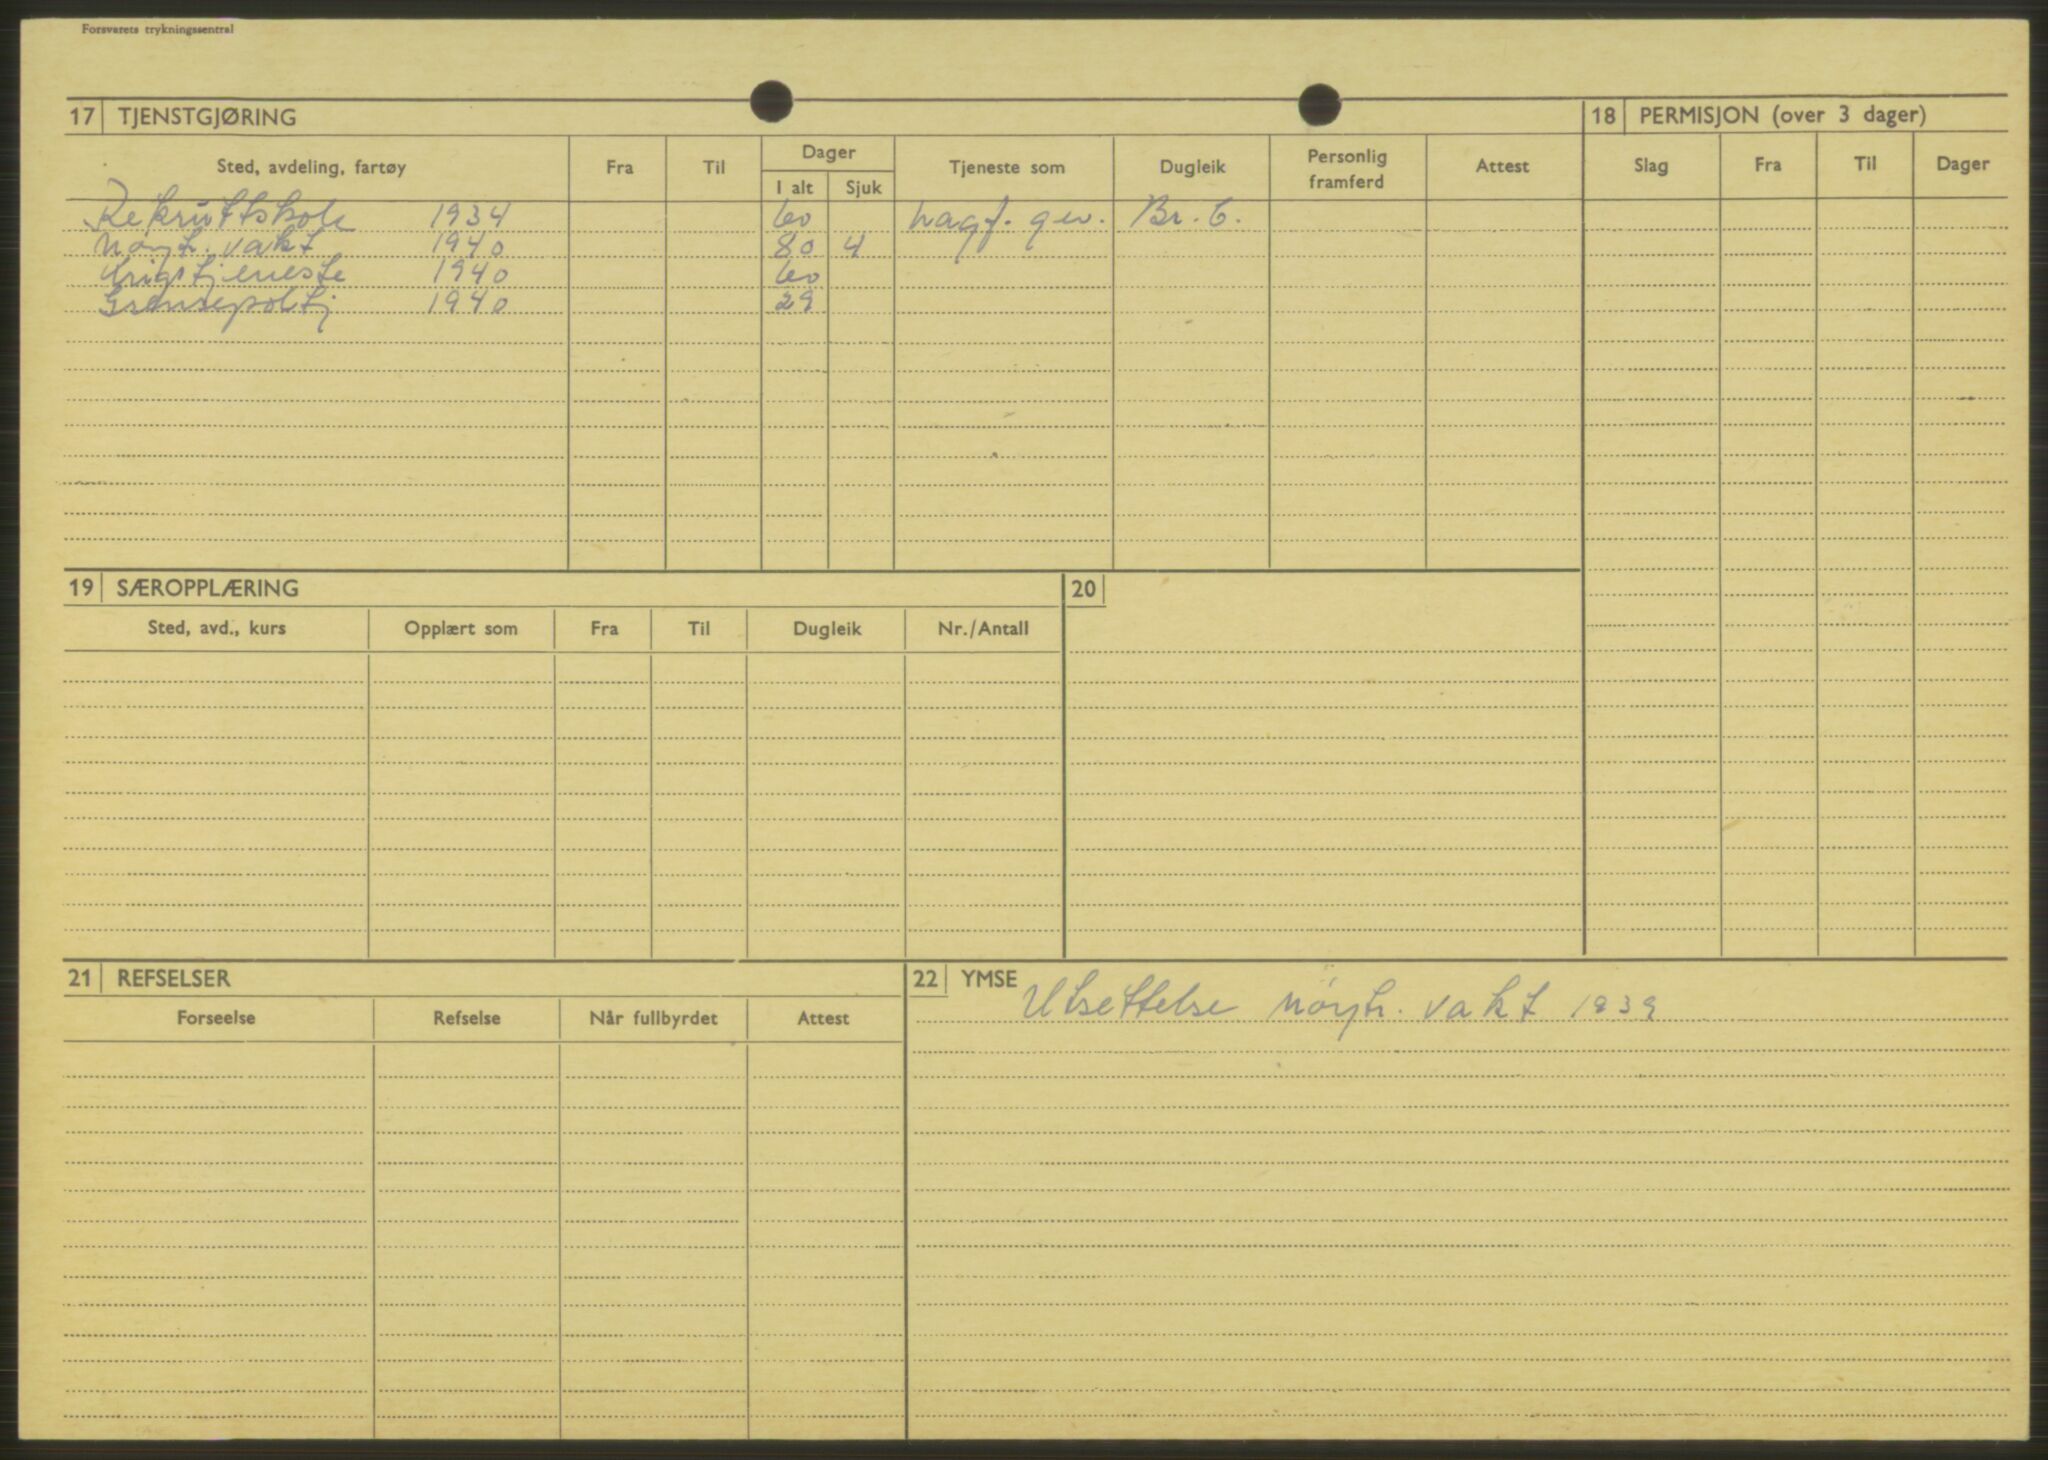 Forsvarets trykningssentral
17 TJENSTGJØRING
18 PERMISJON (over 3 dager)
Sted, avdeling, fartøy Fra Til Dager I alt Sjuk Tjeneste som Dugleik Personlig framferd Attest Slag Fra Til Dager
Rekruttskole 1934 60 gev. Br. C.
Nøytr. vakt 1940 80 4
Krigstjeneste 1940 60
Grensepoliti 1940 29
19 SÆROPPLÆRING
20
Sted, avd., kurs Opplært som Fra Til Dugleik Nr./Antall
21 REFSELSER
Forseelse Refselse Når fullbyrdet Attest
22 YMSE Utsettelse nöytr. vakt 1939